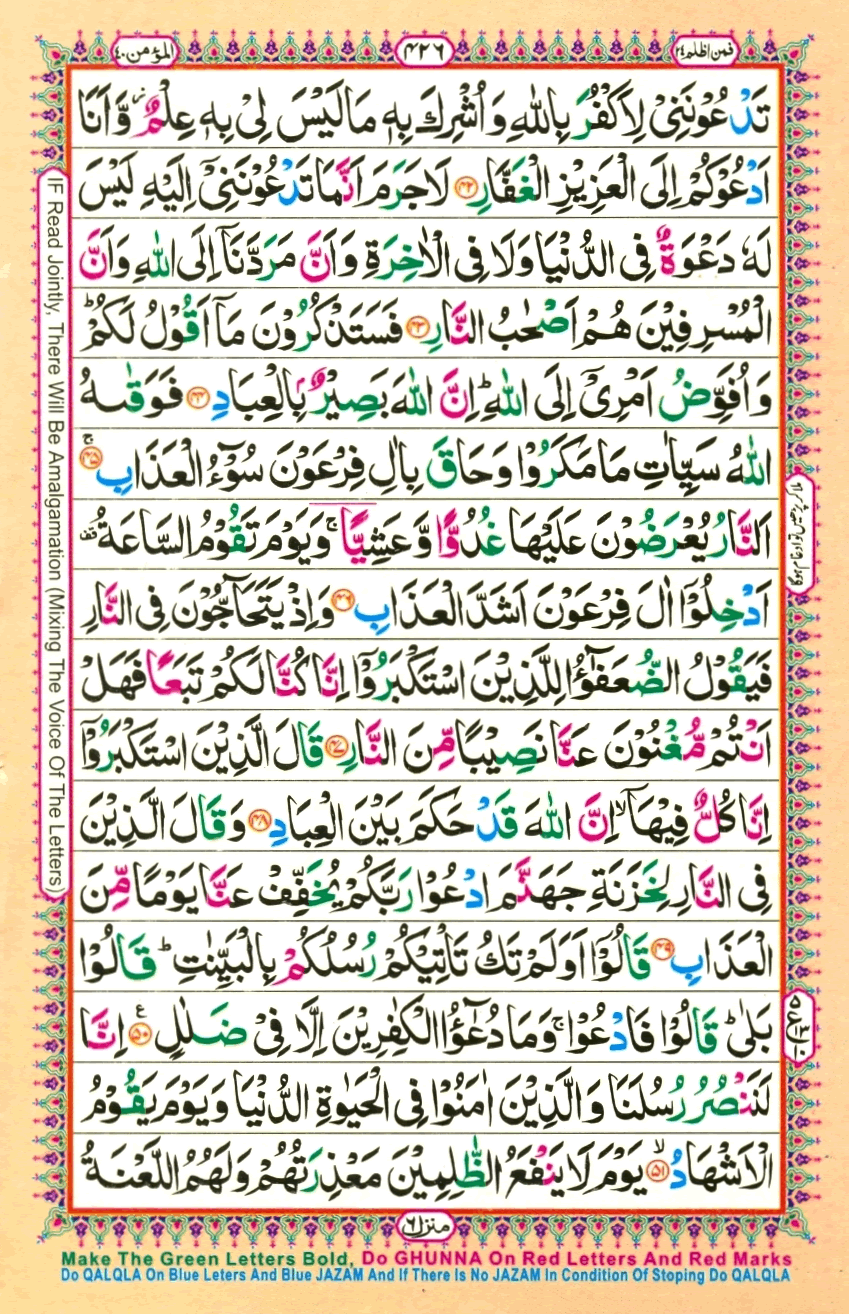 فمن اظلم ۲۴
۴۲۶
المؤمن ۴۰
تَدْعُوْنَنِیْ لِاَكْفُرَ بِاللّٰهِ وَ اُشْرِكَ بِهٖ مَا لَیْسَ لِیْ بِهٖ عِلْمٌ٘ وَّ اَنَا
اَدْعُوْكُمْ اِلَی الْعَزِیْزِ الْغَفَّارِ ﴿۴۲﴾ لَا جَرَمَ اَنَّمَا تَدْعُوْنَنِیْۤ اِلَیْهِ لَیْسَ
لَهٗ دَعْوَةٌ فِی الدُّنْیَا وَ لَا فِی الْاٰخِرَةِ وَ اَنَّ مَرَدَّنَاۤ اِلَی اللّٰهِ وَ اَنَّ
الْمُسْرِفِیْنَ هُمْ اَصْحٰبُ النَّارِ ﴿۴۳﴾ فَسَتَذْكُرُوْنَ مَاۤ اَقُوْلُ لَكُمْؕ
وَ اُفَوِّضُ اَمْرِیْۤ اِلَی اللّٰهِؕ اِنَّ اللّٰهَ بَصِیْرٌۢ بِالْعِبَادِ ﴿۴۴﴾ فَوَقٰىهُ
اللّٰهُ سَیِّاٰتِ مَا مَكَرُوْا وَ حَاقَ بِاٰلِ فِرْعَوْنَ سُوْٓءُ الْعَذَابِۚ ﴿۴۵﴾
اَلنَّارُ یُعْرَضُوْنَ عَلَیْهَا غُدُوًّا وَّ عَشِیًّاۚ وَ یَوْمَ تَقُوْمُ السَّاعَةُ قف
اَدْخِلُوْۤا اٰلَ فِرْعَوْنَ اَشَدَّ الْعَذَابِ ﴿۴۶﴾ وَ اِذْ یَتَحَآجُّوْنَ فِی النَّارِ
فَیَقُوْلُ الضُّعَفٰٓؤُا لِلَّذِیْنَ اسْتَكْبَرُوْۤا اِنَّا كُنَّا لَكُمْ تَبَعًا فَهَلْ
اَنْتُمْ مُّغْنُوْنَ عَنَّا نَصِیْبًا مِّنَ النَّارِ ﴿۴۷﴾ قَالَ الَّذِیْنَ اسْتَكْبَرُوْۤا
اِنَّا كُلٌّ فِیْهَاۤۙ اِنَّ اللّٰهَ قَدْ حَكَمَ بَیْنَ الْعِبَادِ ﴿۴۸﴾ وَ قَالَ الَّذِیْنَ
فِی النَّارِ لِخَزَنَةِ جَهَنَّمَ ادْعُوْا رَبَّكُمْ یُخَفِّفْ عَنَّا یَوْمًا مِّنَ
الْعَذَابِ ﴿۴۹﴾ قَالُوْۤا اَوَ لَمْ تَكُ تَاْتِیْكُمْ رُسُلُكُمْ بِالْبَیِّنٰتِؕ قَالُوْا
بَلٰیؕ قَالُوْا فَادْعُوْاۚ وَ مَا دُعٰٓؤُا الْكٰفِرِیْنَ اِلَّا فِیْ ضَلٰلٍ ﴿۵۰﴾ع اِنَّا
لَنَنْصُرُ رُسُلَنَا وَ الَّذِیْنَ اٰمَنُوْا فِی الْحَیٰوةِ الدُّنْیَا وَ یَوْمَ یَقُوْمُ
الْاَشْهَادُۙ ﴿۵۱﴾ یَوْمَ لَا یَنْفَعُ الظّٰلِمِیْنَ مَعْذِرَتُهُمْ وَ لَهُمُ اللَّعْنَةُ
IF Read Jointly, There Will Be Amalgamation (Mixing The Voice Of The Letters)
منزل ۶
Make The Green Letters Bold, Do GHUNNA On Red Letters And Red Marks
Do QALQLA On Blue Leters And Blue JAZAM And If There Is No JAZAM In Condition Of Stoping Do QALQLA